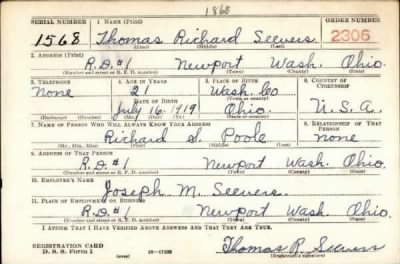 1868
SERIAL NUMBER 1. NAME (Print) ORDER NUMBER
1568 Thomas Richard Seevers 2306
(First) (Middle) (Last)
2. ADDRESS (Print)
R.D.#1 Newport Wash. Ohio.
(Number and street or R. F. D. number) (Town) (County) (State)
3. TELEPHONE 4. AGE IN YEARS 5. PLACE OF BIRTH 6. COUNTRY OF CITIZENSHIP
None 21 Wash. Co.
DATE OF BIRTH (Town or county)
July 16, 1919 Ohio. U.S.A.
(Exchange) (Number) (Mo.) (Day) (Yr.) (State or country)
7. NAME OF PERSON WHO WILL ALWAYS KNOW YOUR ADDRESS 8. RELATIONSHIP OF THAT PERSON
Richard S. Poole None
(Mr., Mrs., Miss) (First) (Middle) (Last)
9. ADDRESS OF THAT PERSON
R.D.#1 Newport Wash. Ohio.
(Number and street or R. F. D. number) (Town) (County) (State)
10. EMPLOYER'S NAME
Joseph M. Seevers.
11. PLACE OF EMPLOYMENT OR BUSINESS
R.D.#1 Newport Wash. Ohio.
(Number and street or R. F. D. number) (Town) (County) (State)
I AFFIRM THAT I HAVE VERIFIED ABOVE ANSWERS AND THAT THEY ARE TRUE.
REGISTRATION CARD
D. S. S. Form 1 (over) Thomas R. Seevers
(Registrant's signature)